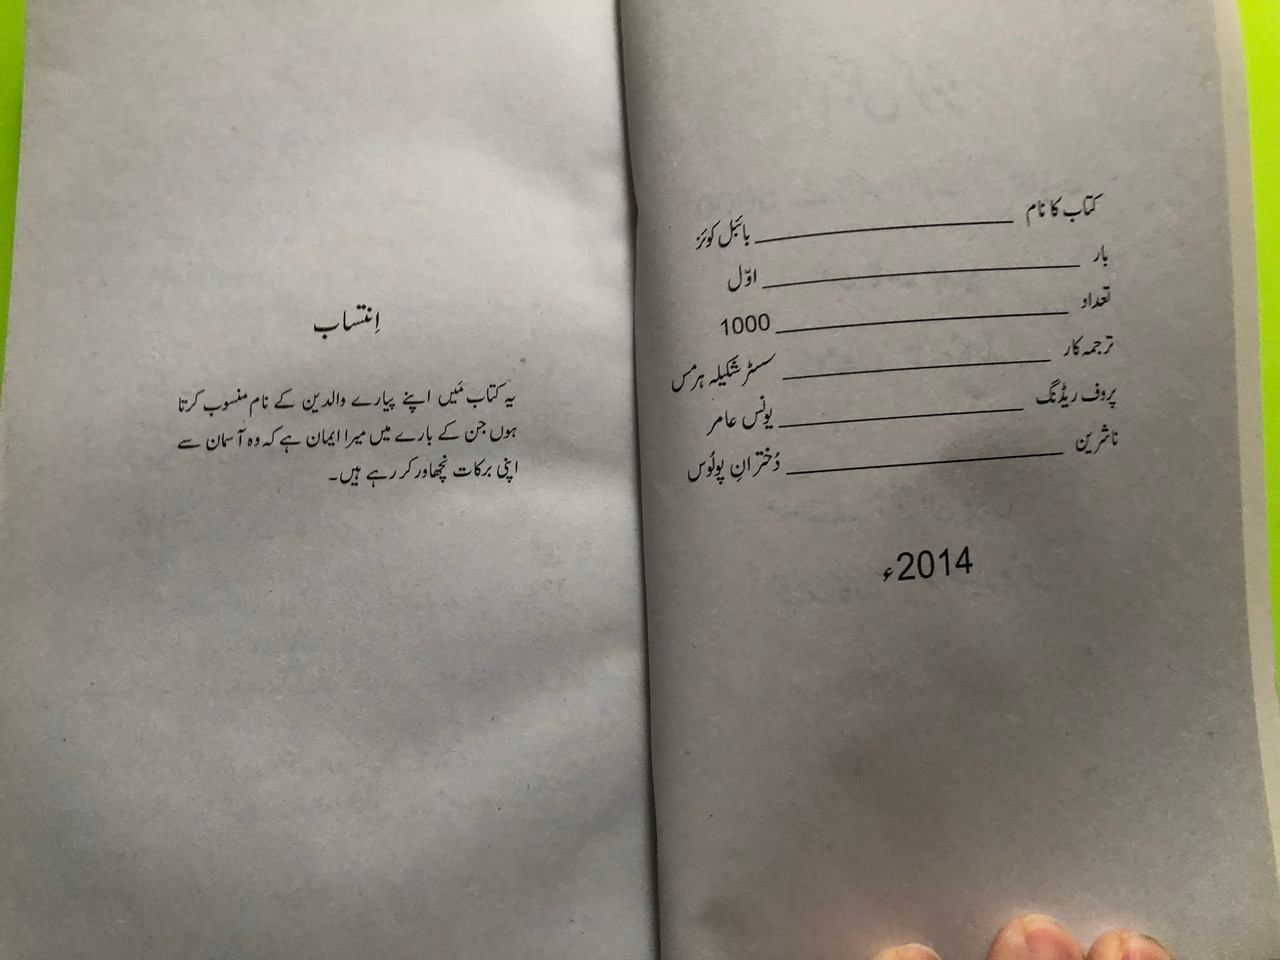 کتاب کا نام ____________ بائبل کوئز
بار ____________ اوّل
تعداد ____________ 1000
ترجمہ کار ____________ سسٹر شکیلہ ہرمس
پروف ریڈنگ ____________ یونس عامر
ناشرین ____________ دُخترانِ پولُوس
2014ء
اِنتساب
یہ کتاب مَیں اپنے پیارے والدین کے نام منسوب کرتا
ہوں جن کے بارے میں میرا ایمان ہے کہ وہ آسمان سے
اپنی برکات نچھاور کر رہے ہیں۔